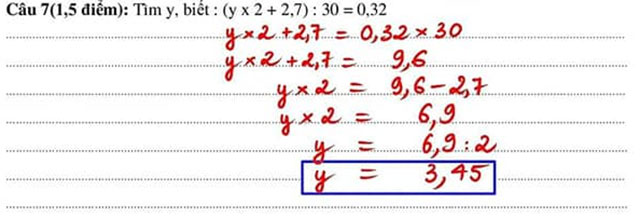 Câu 7(1,5 điểm): Tìm y, biết : (y x 2 + 2,7) : 30 = 0,32
y × 2 + 2,7 = 0,32 × 30
y × 2 + 2,7 = 9,6
y × 2 = 9,6 - 2,7
y × 2 = 6,9
y = 6,9 : 2
y = 3,45